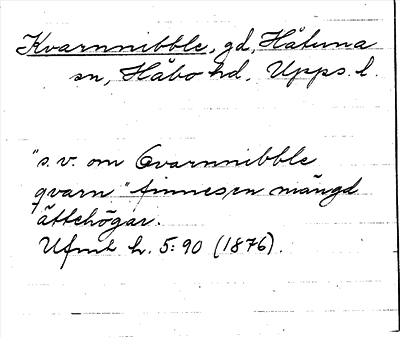 Kvarnnibble, gd, Håtuna
sn, Håbo hd, Upps. l.
"s.v. om Qvarnnibble
qvarn" finnes en mängd
ättehögar.
Ufmt h. 5: 90 (1876).